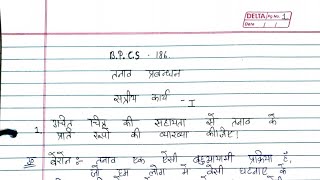 DELTA Pg No. 1
Date / /
B.P.C.S - 186
तनाव प्रबन्धन
सत्रीय कार्य - I
1. उचित चित्र की सहायता से तनाव के
प्रति रूपों की व्याख्या कीजिए।
तनाव एक ऐसी बहुआयामी प्रक्रिया है,
जो हम लोग में वैसी घटनाओं के